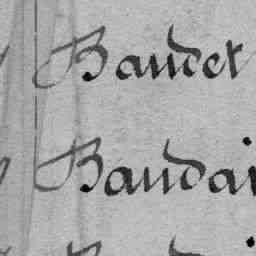 Baudet
Baudai